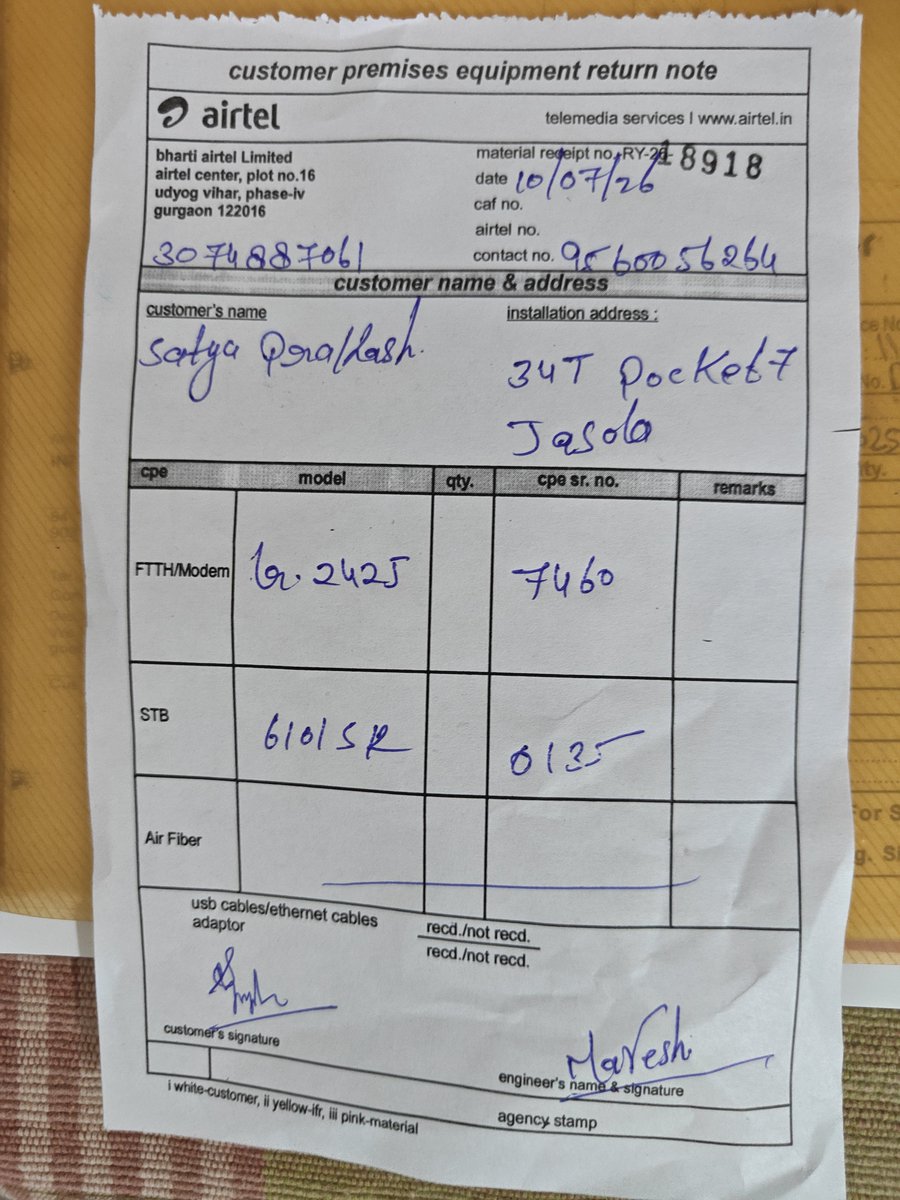 customer premises equipment return note
airtel
telemedia services I www.airtel.in
bharti airtel Limited
airtel center, plot no.16
udyog vihar, phase-iv
gurgaon 122016
3074887061
material receipt no. RY-26- 18918
date 10/07/26
caf no.
airtel no.
contact no. 9560056264
customer name & address
customer's name
Satya Prakash.
installation address :
34T Pocket 7
Jasola
cpe model qty. cpe sr. no. remarks
FTTH/Modem 2425 7460
STB 6101SR 0135
Air Fiber
usb cables/ethernet cables recd./not recd.
adaptor recd./not recd.
customer's signature
engineer's name & signature
i white-customer, ii yellow-ifr, iii pink-material
agency stamp